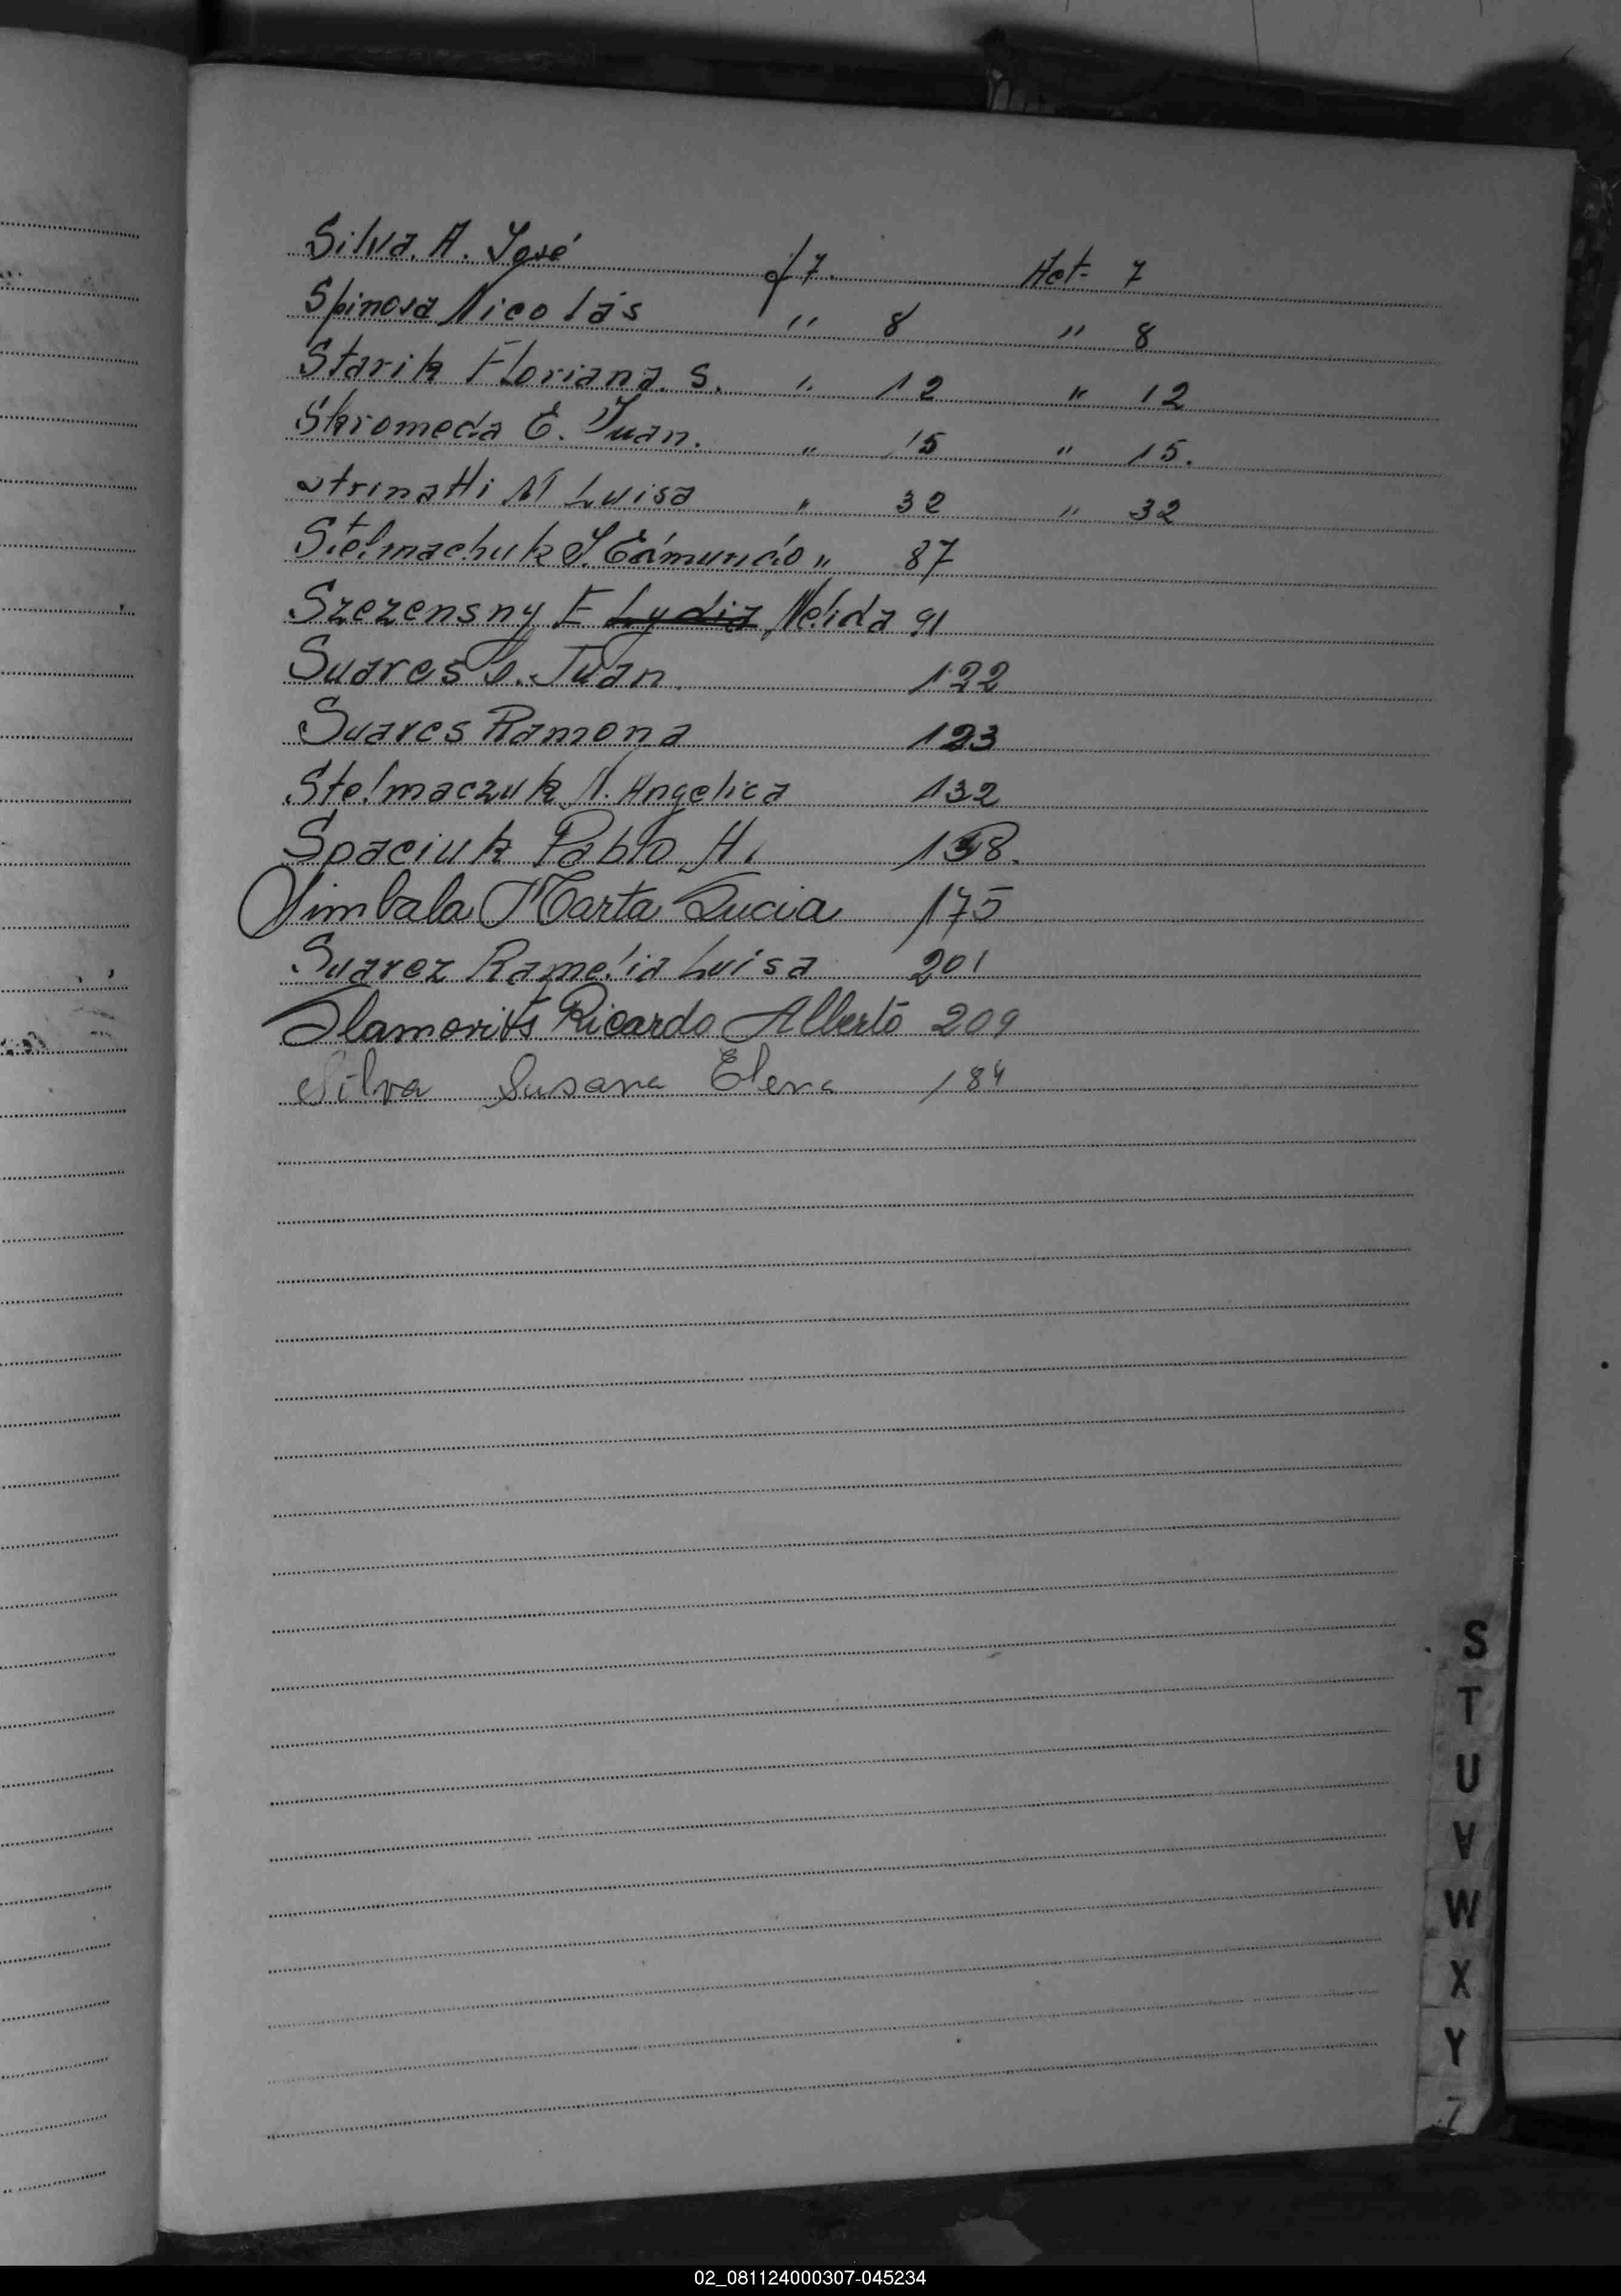 Silva. A. José f 7. Act- 7
Spinosa Nicolás " 8 " 8
Starik Floriana. S. " 12 " 12
Skromeda E. Juan. " 15 " 15.
Strinatti M Luisa " 32 " 32
Stelmachuk J. Edmundo " 87
Szezensny E Lydia Nelida 91
Suares D. Juan. 122
Suares Ramona 123
Stelmaczuk N. Angelica 132
Spaciuk Pablo H. 138.
Simbala Marta Lucia 175
Suarez Ramelia Luisa 201
Slamovits Ricardo Alberto 209
Silva Susana Elena 184
S
T
U
V
W
X
Y
Z
02_081124000307-045234